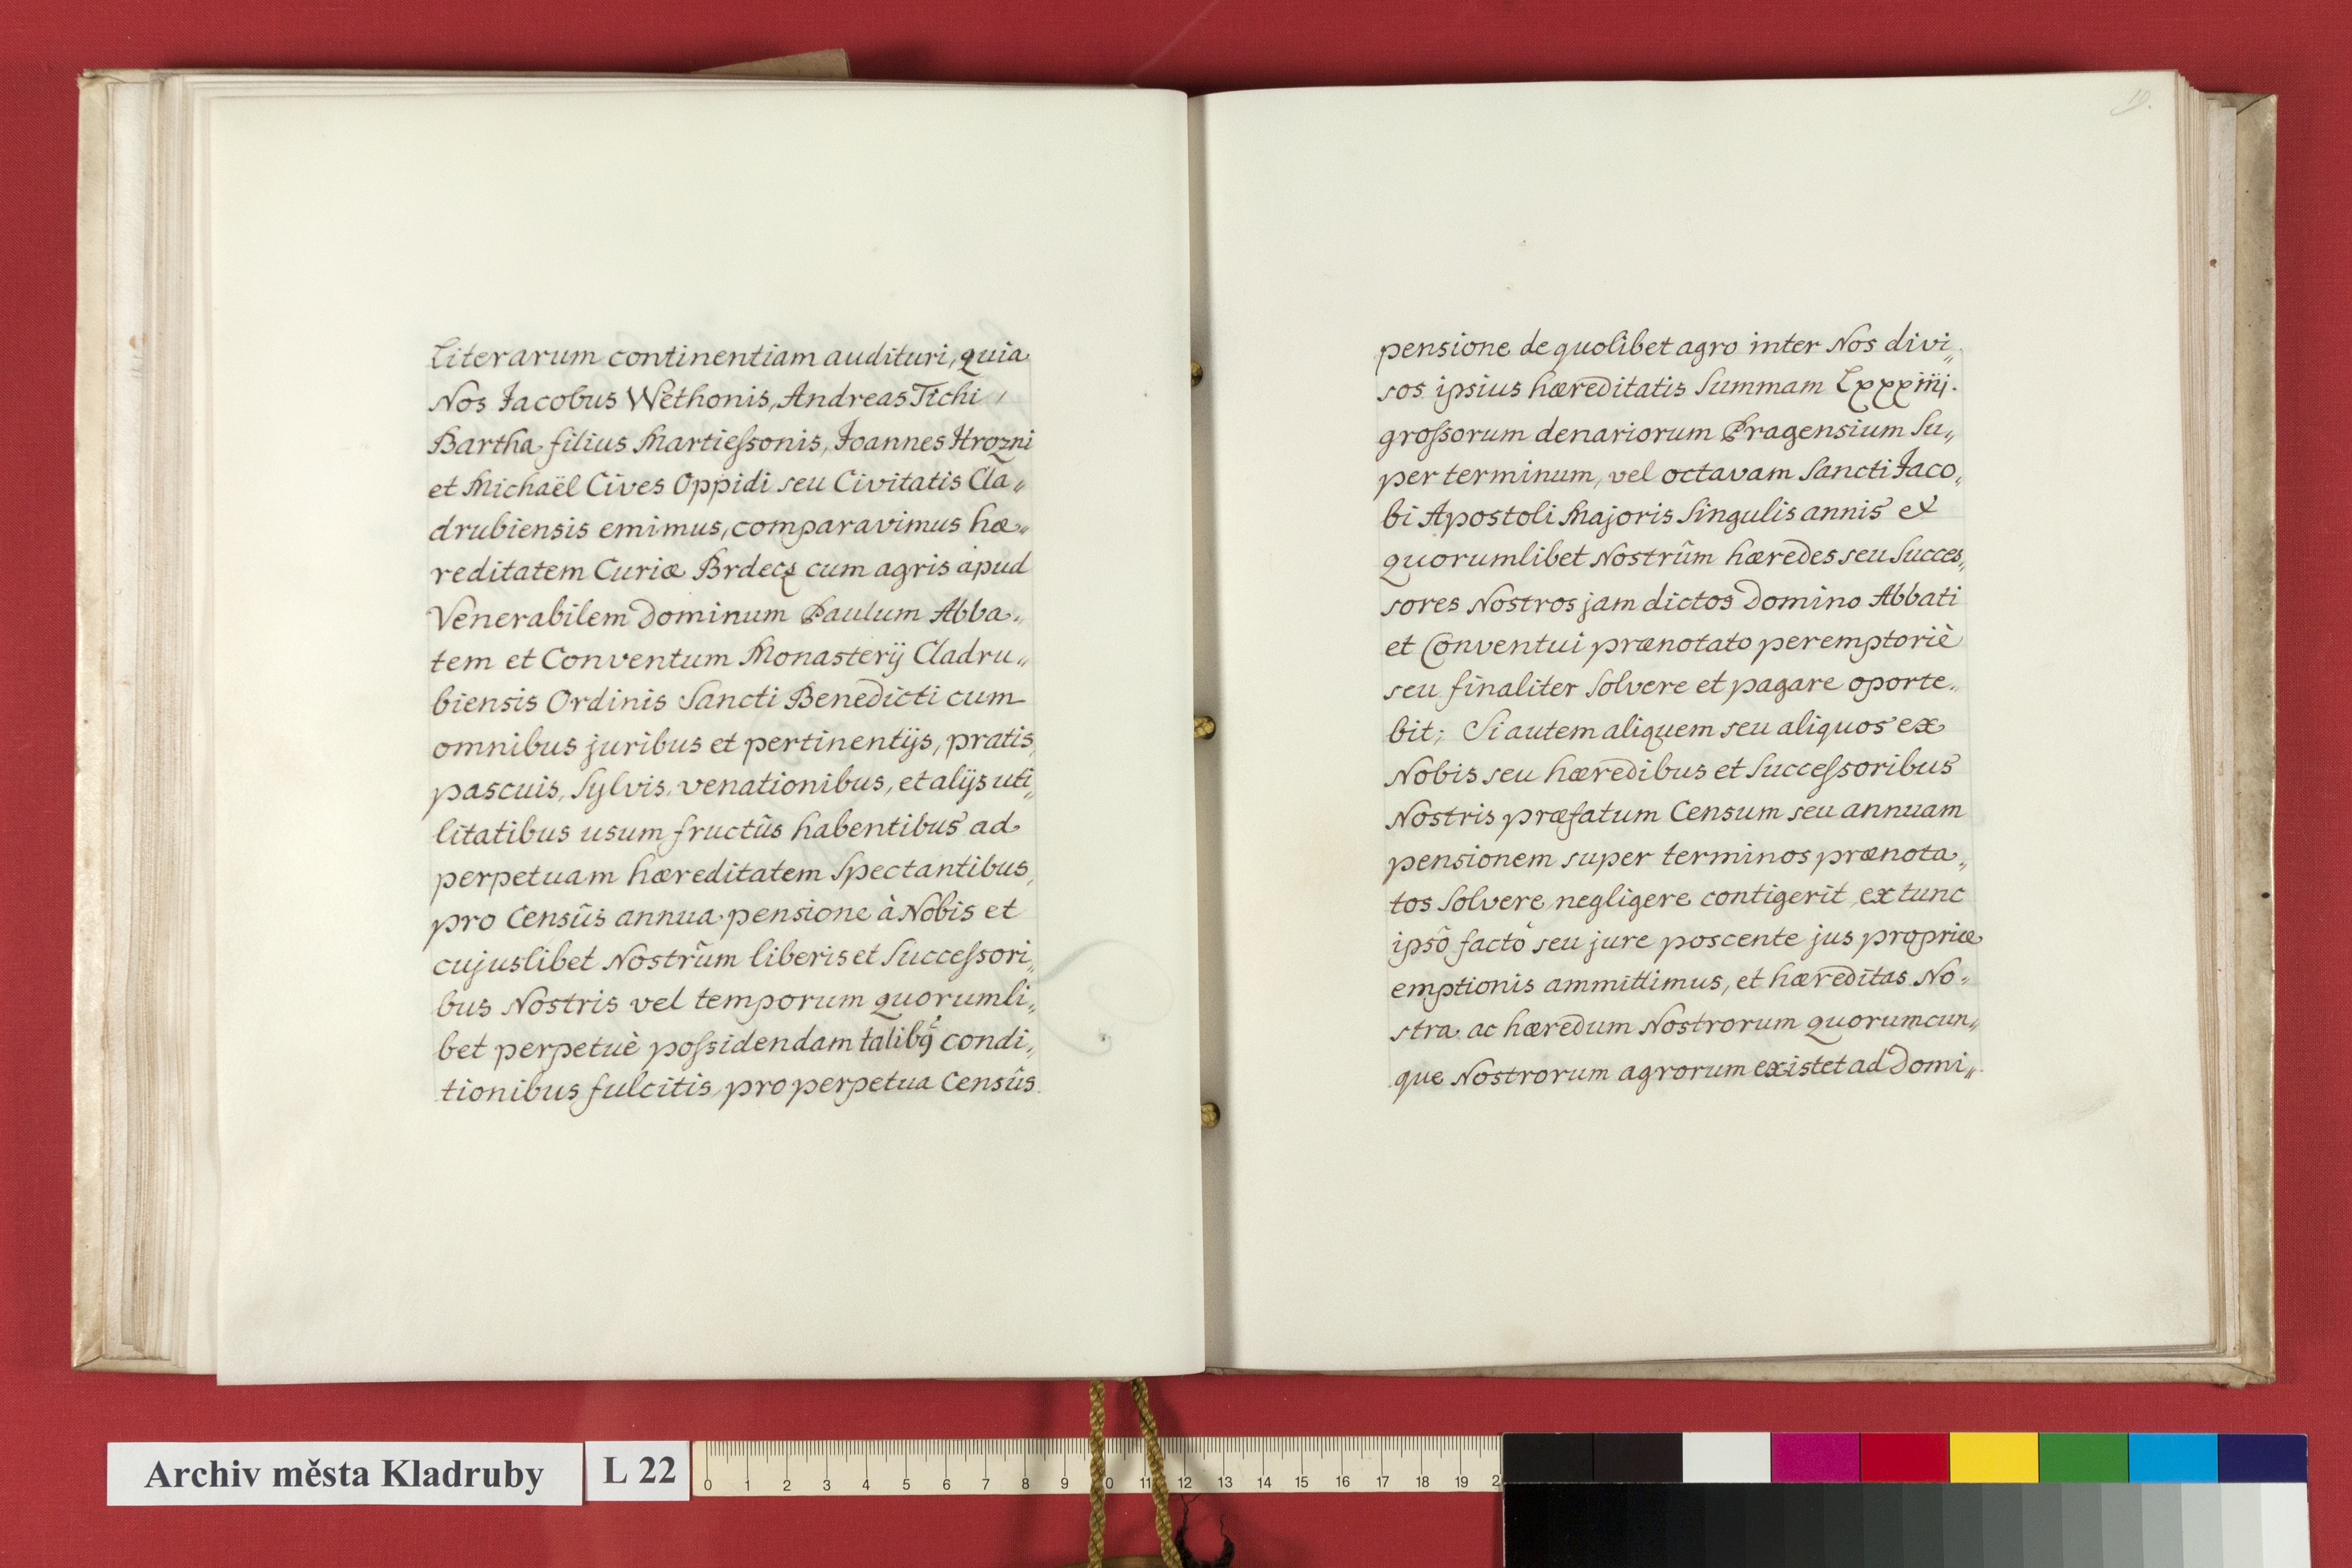 Literarum continentiam audituri, quia
Nos Jacobus Wethonis, Andreas Tichi,
Bartha filius Martieſsonis, Joannes Hrozni
et Michaël Cives Oppidi seu Civitatis Cla„
drubiensis emimus, comparavimus hæ„
reditatem Curiæ Brdecz cum agris apud
Venerabilem Dominum Paulum Abba„
tem et Conventum Monasterÿ Cladru„
biensis Ordinis Sancti Benedicti cum
omnibus juribus et pertinentÿs, pratis,
pascuis, Sylvis, venationibus, et alÿs uti„
litatibus usum fructûs habentibus ad
perpetuam hæreditatem Spectantibus,
pro Censûs annua pensione à Nobis et
cujuslibet Nostrûm liberis et Succeſsori„
bus Nostris vel temporum quorumli„
bet perpetuè poſsidendam talibq condi„
tionibus fulcitis, pro perpetua Censûs
19.
pensione de quolibet agro inter Nos divi„
sos ipsius hæreditatis Summam Lxxxiiij.
groſsorum denariorum Pragensium Su„
per terminum, vel octavam Sancti Jaco„
bi Apostoli Majoris Singulis annis et
quorumlibet Nostrûm hæredes seu Succes„
sores Nostros jam dictos Domino Abbati
et Conventui prænotato peremptoriè
seu finaliter Solvere et pagare oporte„
bit; Si autem aliquem seu aliquos ex
Nobis seu hæredibus et Succeſsoribus
Nostris præfatum Censum seu annuam
pensionem super terminos prænota„
tos Solvere negligere contigerit, ex tunc
ipsô factô seu jure poscente jus propriæ
emptionis ammittimus, et hæreditas No„
stra ac hæredum Nostrorum quorumcun„
que Nostrorum agrorum existet ad Domi„
Archiv města Kladruby
L 22
0 1 2 3 4 5 6 7 8 9 0 11 12 13 14 15 16 17 18 19 2